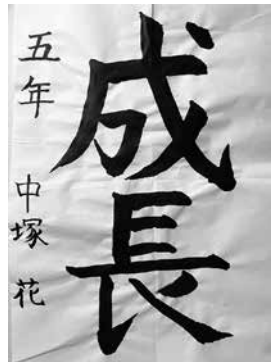 成長
五年 中塚 花